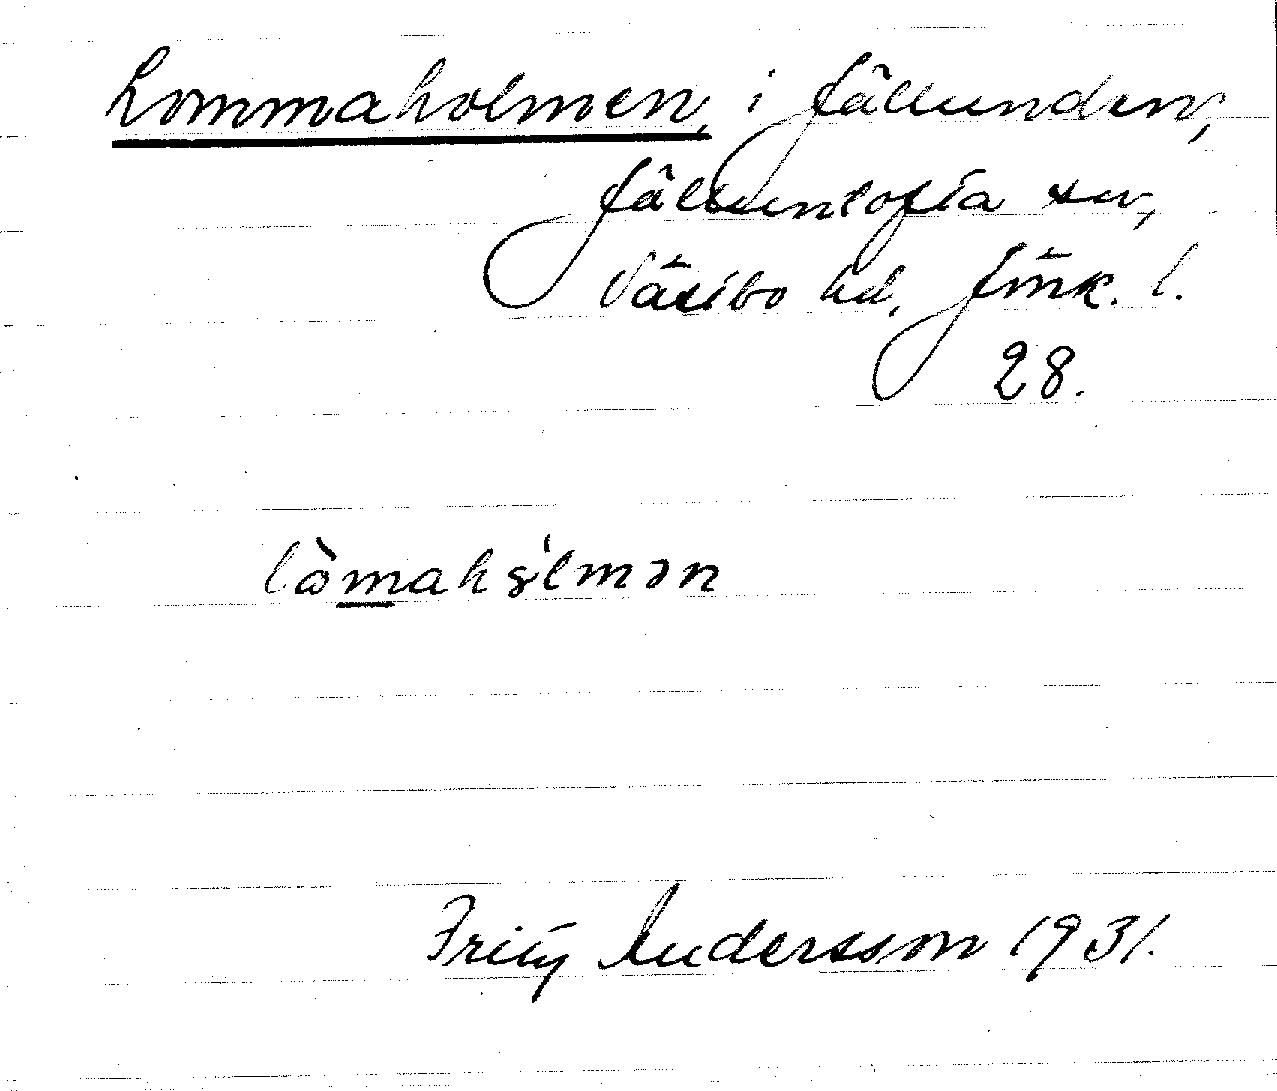 Lommaholmen, i Jällunden,
Jälluntofta sn,
Västbo hd, Jönk. l.
28.
lòmahólmən
Fritz Andersson 1931.